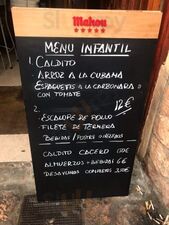 Mahou
MENU INFANTIL
1 CALDITO
- ARROZ A LA CUBANA
ESPAGUETIS A LA CARBONARA O
CON TOMATE
12€
2
- ESCALOPE DE POLLO
- FILETE DE TERNERA
BEBIDAS/POSTRE O HELADOS
CALDITO CASERO
ALMUERZOS + BEBIDA 6€
DESAYUNOS COMPLETOS 3,50€